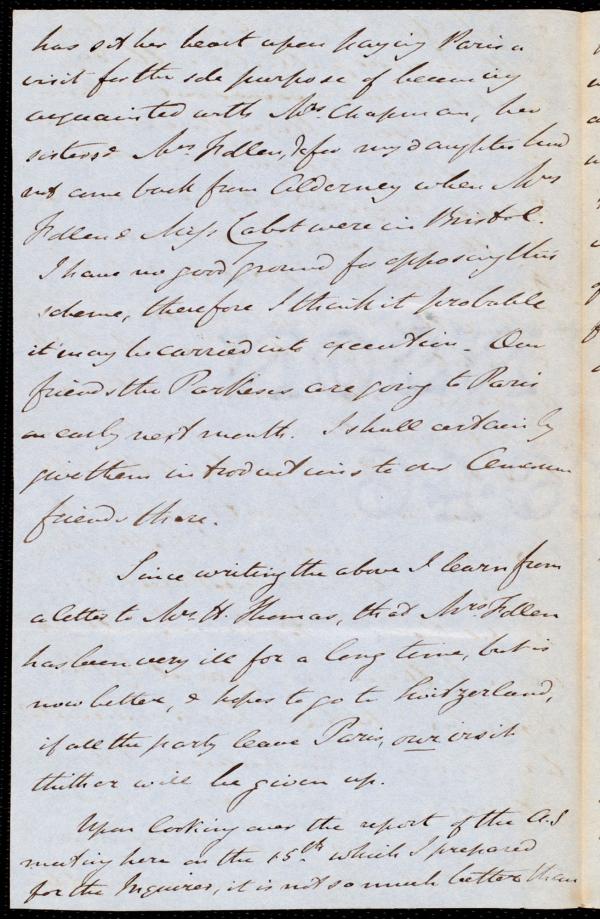 has set her heart upon paying Paris a
visit for the sole purpose of becoming
acquainted with Mrs. Chapman, her
sisters & Mrs Follen, for my daughter had
not come back from Alderney when Mrs
Follen & Miss Cabot were in Bristol.
I have no good ground for opposing this
scheme, therefore I think it probable
it may be carried into execution - Our
friends the Parkeses are going to Paris
early next month. I shall certainly
give them introductions to our American
friends there.
Since writing the above I learn from
a letter to Mr. H. Thomas, that Mrs. Follen
has been very ill for a long time, but is
now better, & hopes to go to Switzerland,
if all the party leave Paris, our visit
thither will be given up.
Upon looking over the report of the A.S
meeting here on the 15th. which I prepared
for the Inquirer, it is not so much better than